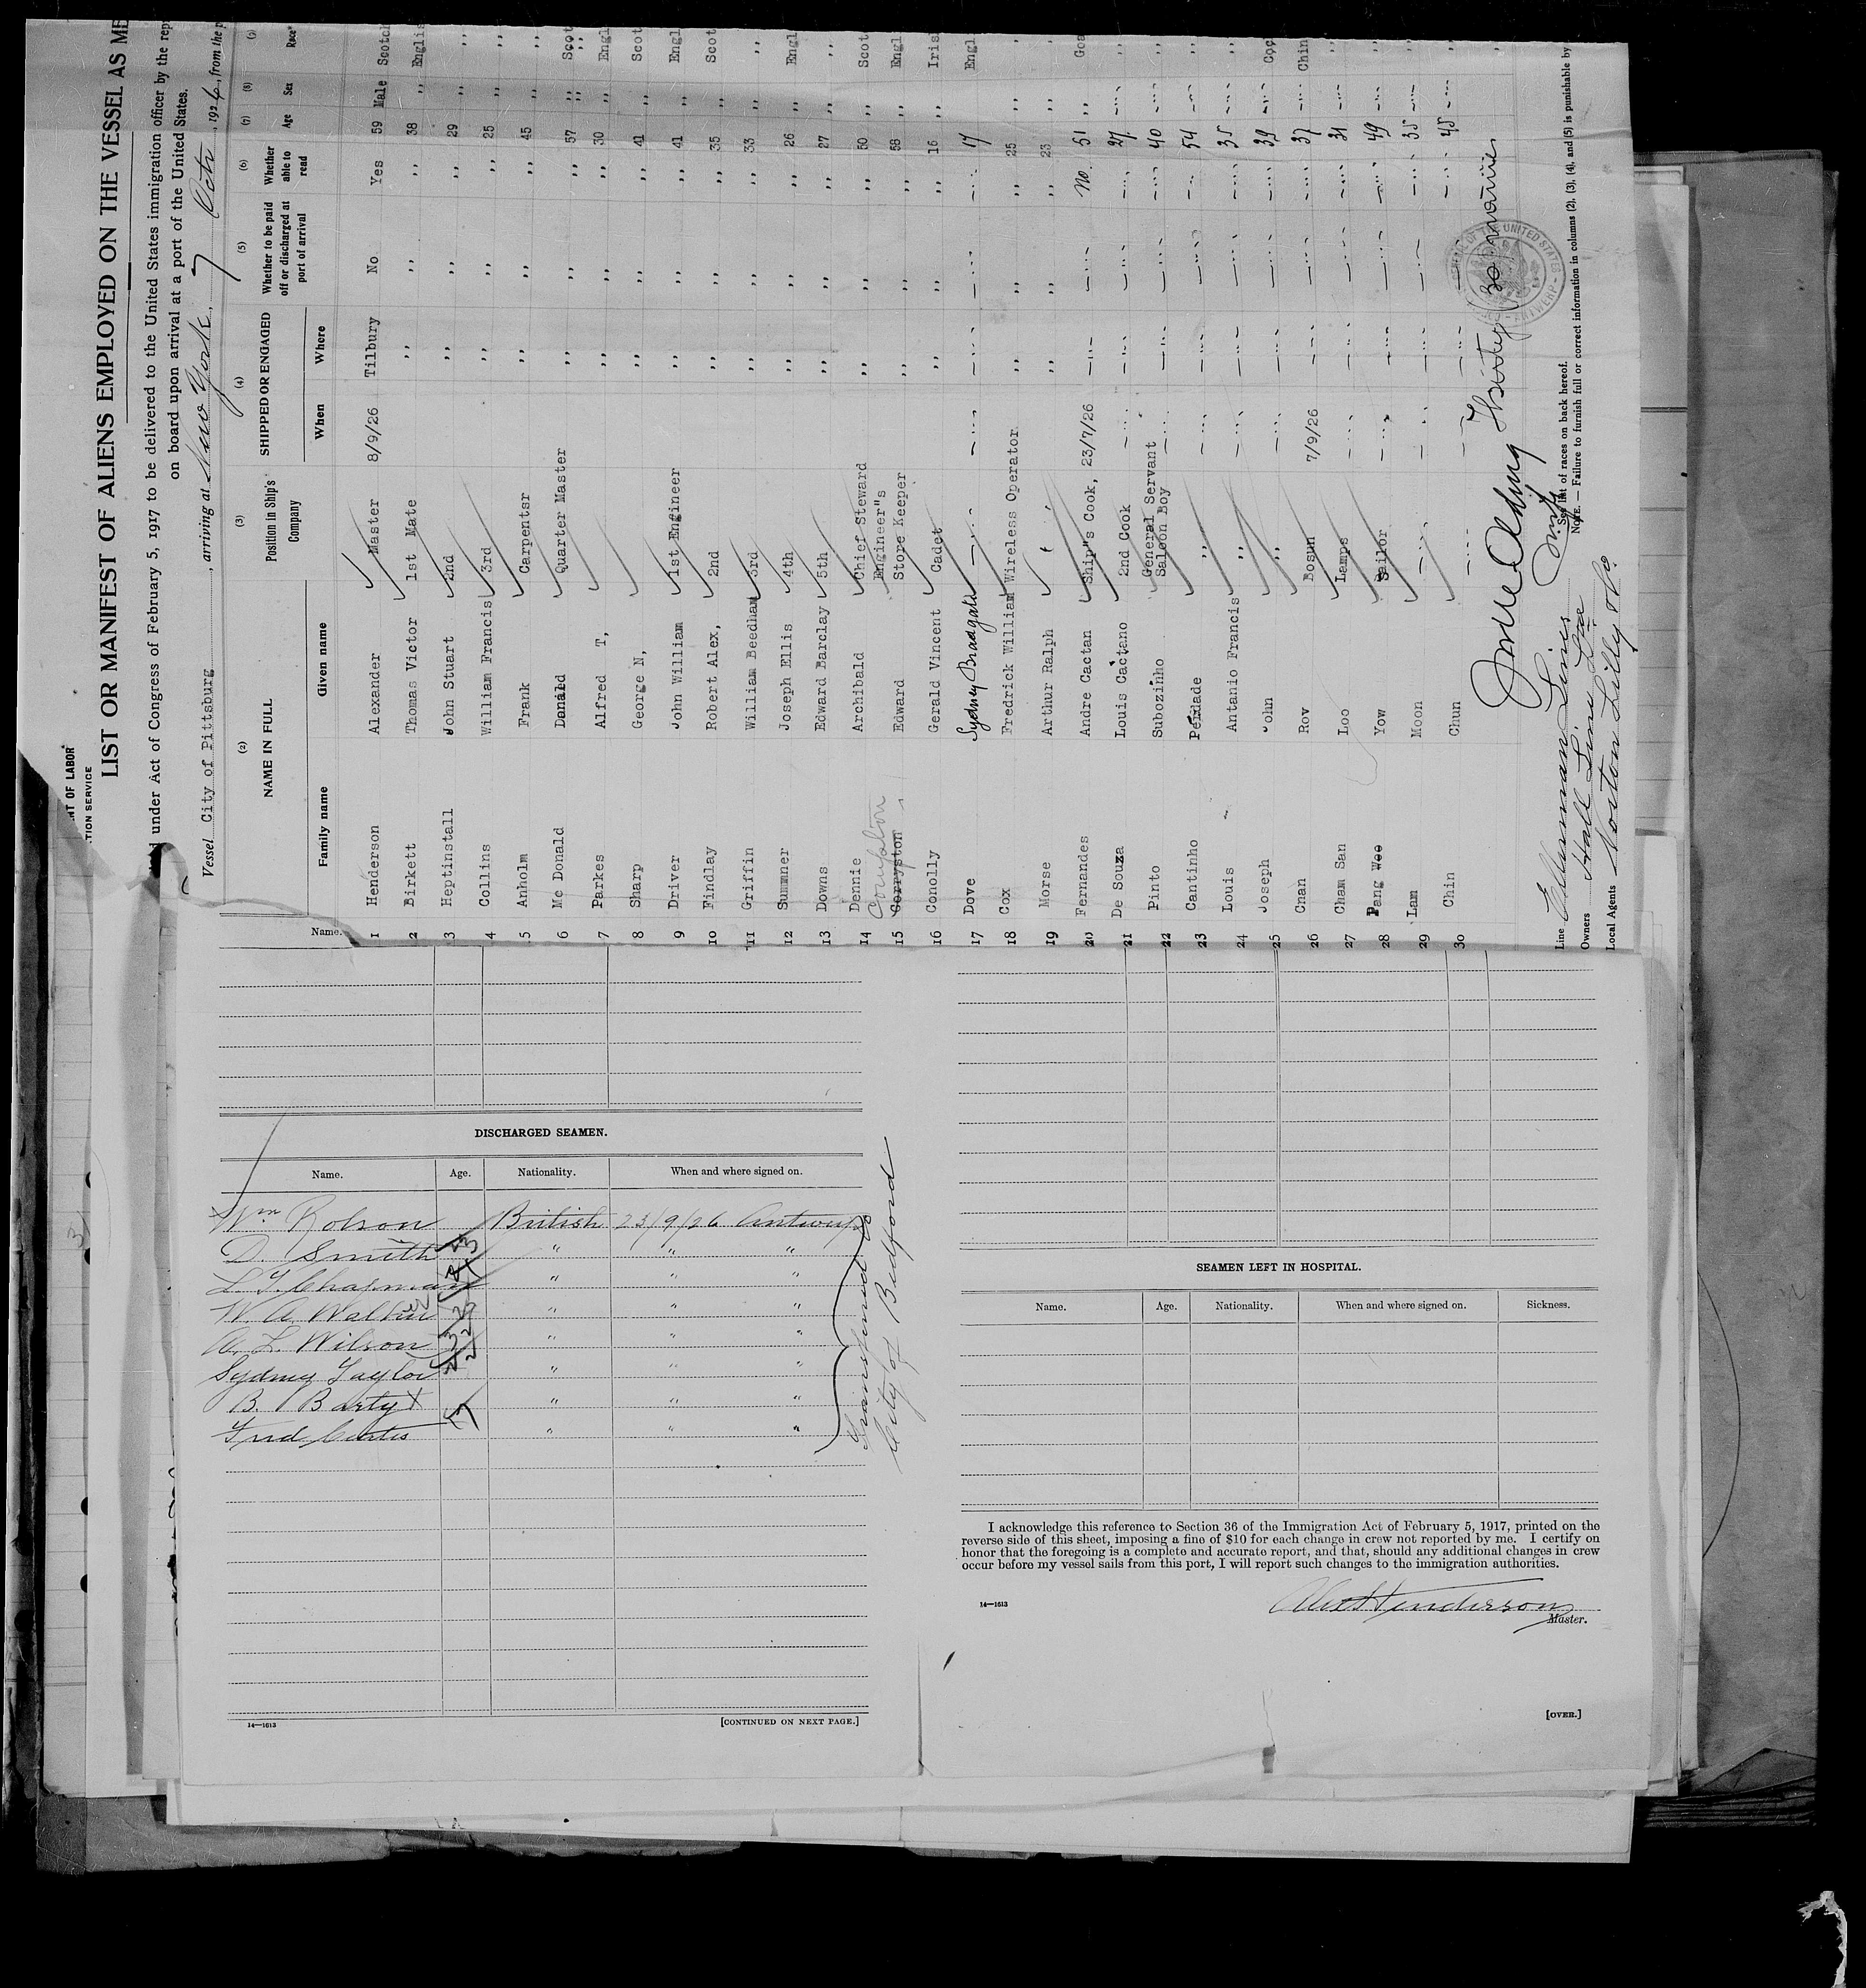 NT OF LABOR
TION SERVICE
LIST OR MANIFEST OF ALIENS EMPLOYED ON THE VESSEL AS ME
under Act of Congress of February 5, 1917 to be delivered to the United States immigration officer by the rep
on board upon arrival at a port of the United States.
Vessel City of Pittsburg, arriving at New York, 7 Octr, 1926, from the p
(2) (3) (4) (5) (6) (7) (8)
NAME IN FULL Position in Ship's Company SHIPPED OR ENGAGED Whether to be paid off or discharged at port of arrival Whether able to read Age Sex Race*
Family name Given name When Where
1 Henderson Alexander Master 8/9/26 Tilbury No Yes 59 Male Scotch
2 Birkett Thomas Victor 1st Mate ,, ,, ,, 38 ,, Englis
3 Heptinstall John Stuart 2nd ,, ,, ,, 29 ,, ,,
4 Collins William Francis 3rd ,, ,, ,, 25 ,, ,,
5 Anholm Frank Carpentsr ,, ,, ,, 45 ,, ,,
6 Mc Donald Donald Quarter Master ,, ,, ,, 57 ,, Scot
7 Parkes Alfred T, ,, ,, ,, 30 ,, Engl
8 Sharp George N, ,, ,, ,, 41 ,, Scot
9 Driver John William 1st Engineer ,, ,, ,, 41 ,, Engl
10 Findlay Robert Alex, 2nd ,, ,, ,, 35 ,, Scot
11 Griffin William Beedham 3rd ,, ,, ,, 33 ,, ,,
12 Sumnner Joseph Ellis 4th ,, ,, ,, 26 ,, Engl
13 Downs Edward Barclay 5th ,, ,, ,, 27 ,, ,,
14 Dennie Archibald Chief Steward ,, ,, ,, 50 ,, Scot
Engineer"s
15 Edward Store Keeper ,, ,, ,, 58 ,, Engl
16 Conolly Gerald Vincent Cadet ,, ,, ,, 16 ,, Iris
17 Dove Sydney 17 Engl
18 Cox Fredrick William Wireless Operator ,, ,, ,, 25 ,, ,
19 Morse Arthur Ralph ,, ,, ,, 23 ,, ,
20 Fernandes Andre Cactan Ship"s Cook, 23/7/26 No. 51 ,, Goa
21 De Souza Louis Cactano 2nd Cook 27 ,,
22 Pinto Subozinho General Servant 40 ,,
Saloon Boy
23 Cantinho Peidade ,, 54 ,,
24 Louis Antanio Francis ,, 35 ,,
25 Joseph John ,, 39
26 Cnan Rov Bosun 7/9/26 37 Chin
27 Cham San Loo Lamps 31 ,,
28 Pang Woo Yow Sailor 49 ,,
29 Lam Moon 35 ,,
30 Chin Chun 45 ,
Line Ellerman Lines
Owners Hall Line Ltd
Local Agents Norton Lilly & Co.
See list of races on back hereof.
NOTE.—Failure to furnish full or correct information in columns (2), (3), (4), and (5) is punishable by
Name.
DISCHARGED SEAMEN.
Name. Age. Nationality. When and where signed on.
Wm Robson British 23/9/26 Antwerp
D. Smith " " "
L. T. Chapman " " "
W. A. Walker " " "
A. L. Wilson " " "
Sydney Taylor " " "
B. Barty " " "
Fred Curtis " " "
Transferred to
City of Bedford
14—1613
[CONTINUED ON NEXT PAGE.]
SEAMEN LEFT IN HOSPITAL.
Name. Age. Nationality. When and where signed on. Sickness.
I acknowledge this reference to Section 36 of the Immigration Act of February 5, 1917, printed on the
reverse side of this sheet, imposing a fine of $10 for each change in crew not reported by me. I certify on
honor that the foregoing is a complete and accurate report, and that, should any additional changes in crew
occur before my vessel sails from this port, I will report such changes to the immigration authorities.
14—1613
Alex Henderson
Master.
[OVER.]